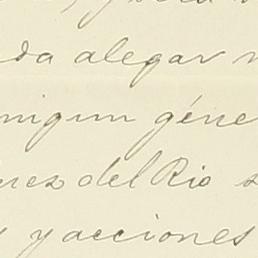 da alegar
nigun géne
nez del Rio
y acciones